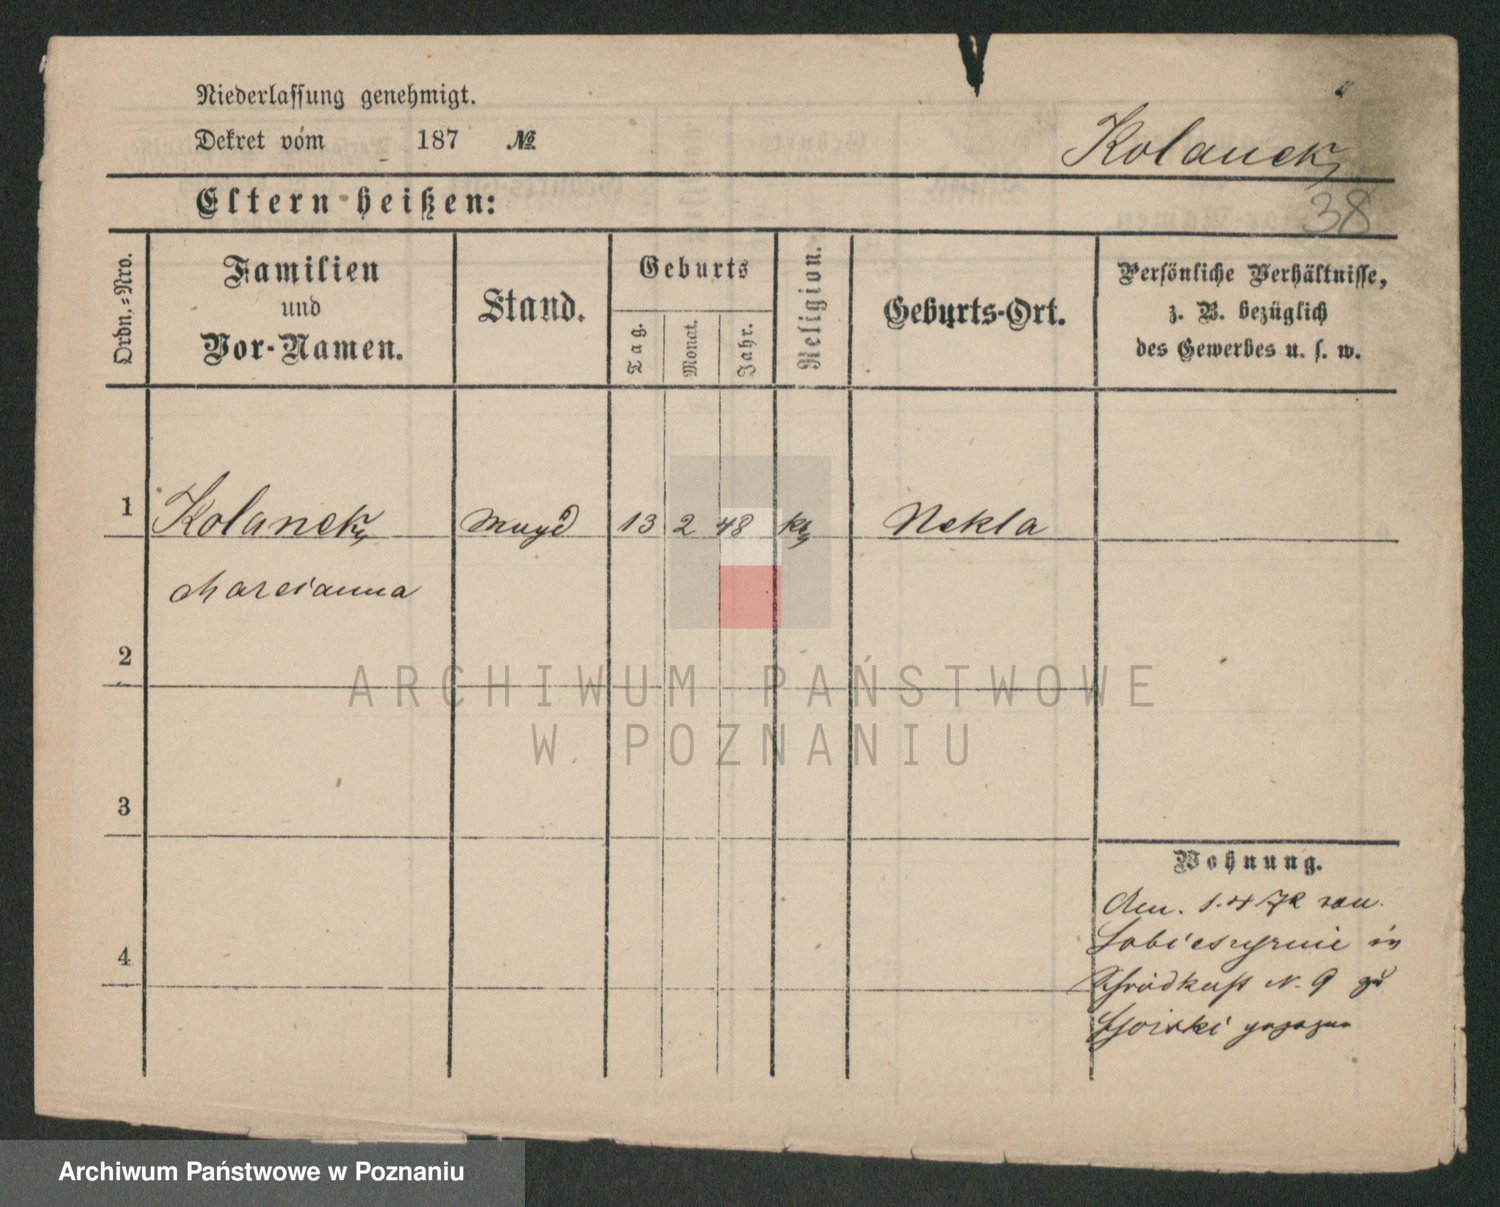 Niederlassung genehmigt.
Dekret vom 187 №
Kolanek
38
Eltern heißen:
Ordn.-Nro.
Familien
und
Vor-Namen.
Stand.
Geburts
Tag.
Monat.
Jahr.
Religion.
Geburts-Ort.
Persönliche Verhältnisse,
z. B. bezüglich
des Gewerbes u. s. w.
1 Kolanek Magd 13 2 48 kth Nekla
Marcianna
2
3
4
ARCHIWUM PAŃSTWOWE
W POZNANIU
Wohnung.
Am 1.4 72 von
in
N. 9 zu
gezogen
Archiwum Państwowe w Poznaniu